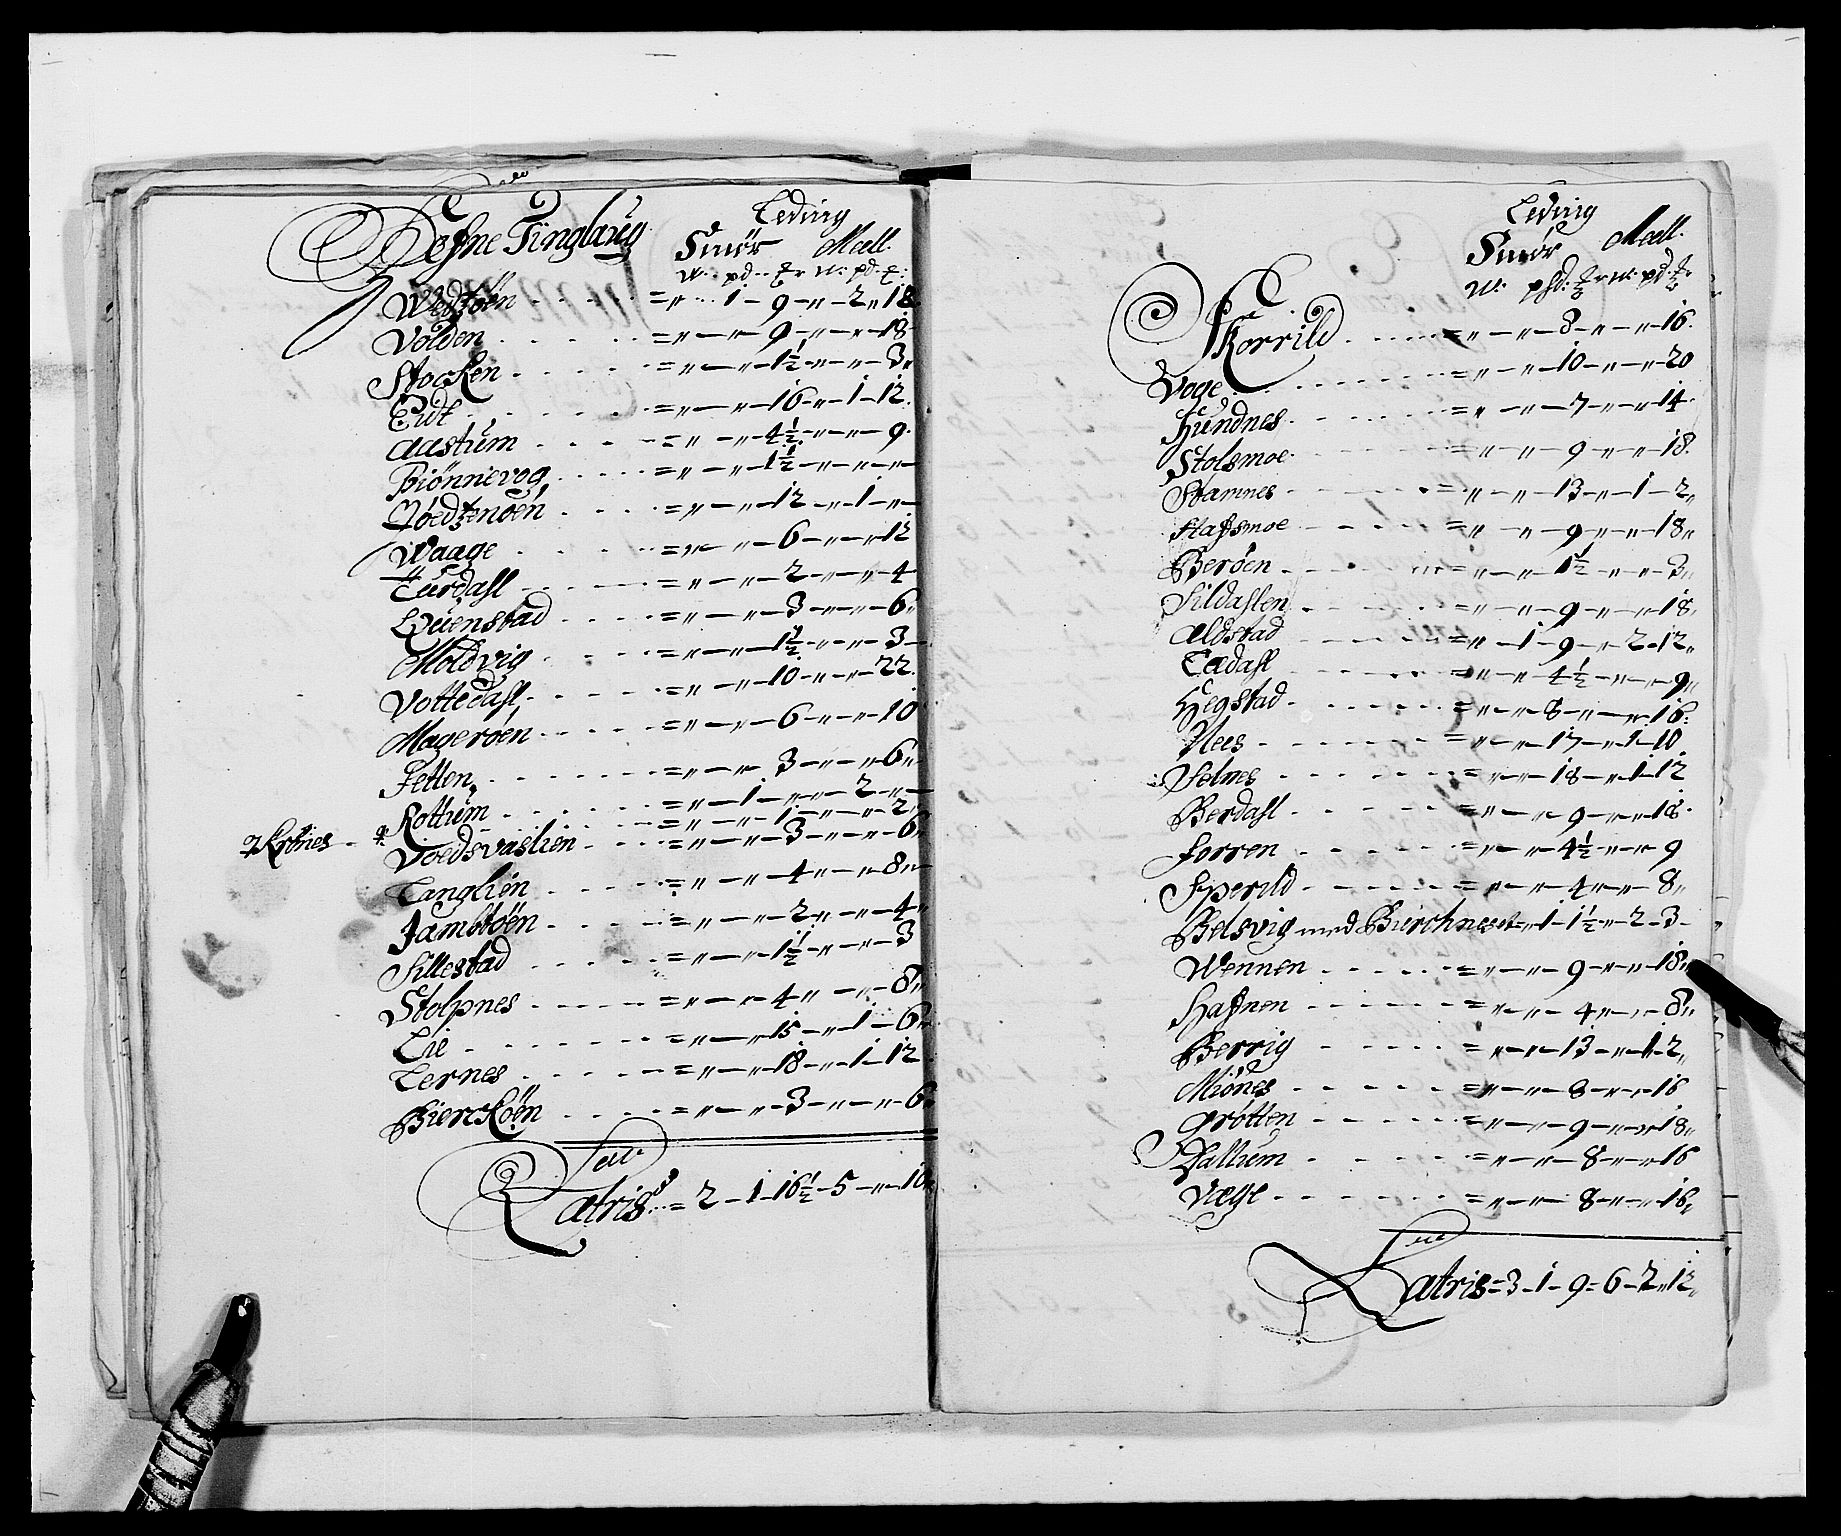 Hefne Tinglaug
Leding
Smör Meell.
W: pd: W: pd:
Wedzöen = „ 1 – 9 – „ 2 „ 18
Volden = „ – „ – 9 – „ – „ – 18
Stocken = „ – „ – 1½ – „ – „ – 3„
Eidt = „ – „ – 16 – „ – 1 – 12
Aastum = „ – „ – 4½ – „ – „ – 9
Biönnevog = „ – „ – 1½ – „ – „ – „
= „ – „ – 12 – „ – 1 – „
Waage = „ – „ – 6 – „ – „ – 12
Lurdasl = „ – „ – 2 – „ – „ – 4
Quenstad = „ – „ – 3 – „ – „ – 6„
Moldvig = „ – „ – 1½ – „ – „ – 3
Vottedasl = „ – „ – 10 – „ – „ – 22
Mageröen = „ – „ – 6 – „ – „ – 10
Jetten = „ – „ – 3 – „ – „ – 6„
Rottum = „ – 1 – „ – „ – 2 – „
Krönes = „ – „ – 1 – „ – „ – 2„
Voedsvaslien = „ – „ – 3 – „ – „ – 6
Langlien = „ – „ – 4 – „ – „ – 8 „
Jambtöen = „ – „ – 2 – „ – „ – 4
Sillestad = „ – „ – 1½ – „ – „ – 3
Stolpnes = „ – „ – 4 – „ – „ – 8„
Lie = „ – „ – 15 – „ – 1 – 6
Lernes = „ – „ – 18 – „ – 1 – 12
Biercköen = „ – „ – 3 – „ – „ – 6
Latris = 2 – 1 – 16½ – 5 – „ – 10
Leding
Smör Meell.
W: W: pd:
Skorrild = „ – „ – 8 – „ – „ – 16
Voge = „ – „ – 10 – „ – „ – 20
Hundnes = „ – „ – 7 – „ – „ – 14
Stolsmoe = „ – „ – 9 – „ – „ – 18
Stamnes = „ – „ – 13 – „ – 1 – 2„
Hafsmoe = „ – „ – 9 – „ – „ – 18„
Beröen = „ – „ – 1½ – „ – „ – 3„
Sildaslen = „ – „ – 9 – „ – „ – 18„
Aldstad = „ – 1 – 9 – „ – 2 – 12„
Ladasl = „ – „ – 4½ – „ – „ – 9„
Hegstad = „ – „ – 8 – „ – „ – 16:
Nees = „ – „ – 17 – „ – 1 – 10
Selnes = „ – „ – 18 – „ – 1 – 12
Berdasl = „ – „ – 9 – „ – „ – 18
Forren = „ – „ – 4½ – „ – „ – 9
Sperild = „ – „ – 4 – „ – „ – 8„
Belsvig med Bierchneset = „ – 1 – 1½ – „ – 2 – 3 –
Wennen = „ – „ – 9 – „ – „ – 18„
Hafnen = „ – „ – 4 – „ – „ – 8„
Berrig = „ – „ – 13 – „ – 1 – 2„
Miönes = „ – „ – 8 – „ – „ – 16
Grötten = „ – „ – 9 – „ – „ – 18„
Dallum = „ – „ – 8 – „ – „ – 16
Væge = „ – „ – 8 – „ – „ – 16„
Latris = 3 – 1 – 9 = 6 – 2 „ 12„